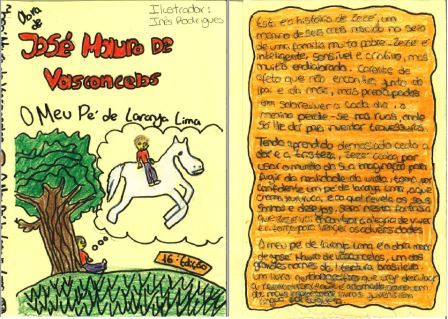 Obra
de
Ilustrador:
Inês Rodrigues
José Mauro de
Vasconcelos
O Meu Pé de Laranja Lima
16ª Edição
Esta é a história de Zezé, um
menino de seis anos nascido no seio
de uma família muito pobre. Zezé é
inteligente, sensível e criativo, mas
muito endiabrado. Carente de
afeto que não encontra junto do
pai e da mãe, mais preocupados
em sobreviver a cada dia, o
menino perde-se nas ruas, onde
só lhe dá pra inventar travessuras.
Tendo aprendido demasiado cedo a
dor e a tristeza, Zezé acaba por
usar o mundo da sua imaginação para
fugir da realidade da vida: tem por
confidente um pé de laranja lima, a que
chama e a quem revela os seus
sonhos e desejos. Será nesta fantasia
que Zezé encontrar a alegria de viver
e vencer as adversidades
O meu pé de laranja lima é a obra maior
de José Mauro de Vasconcelos, um dos
grandes nomes da literatura brasileira
um livro